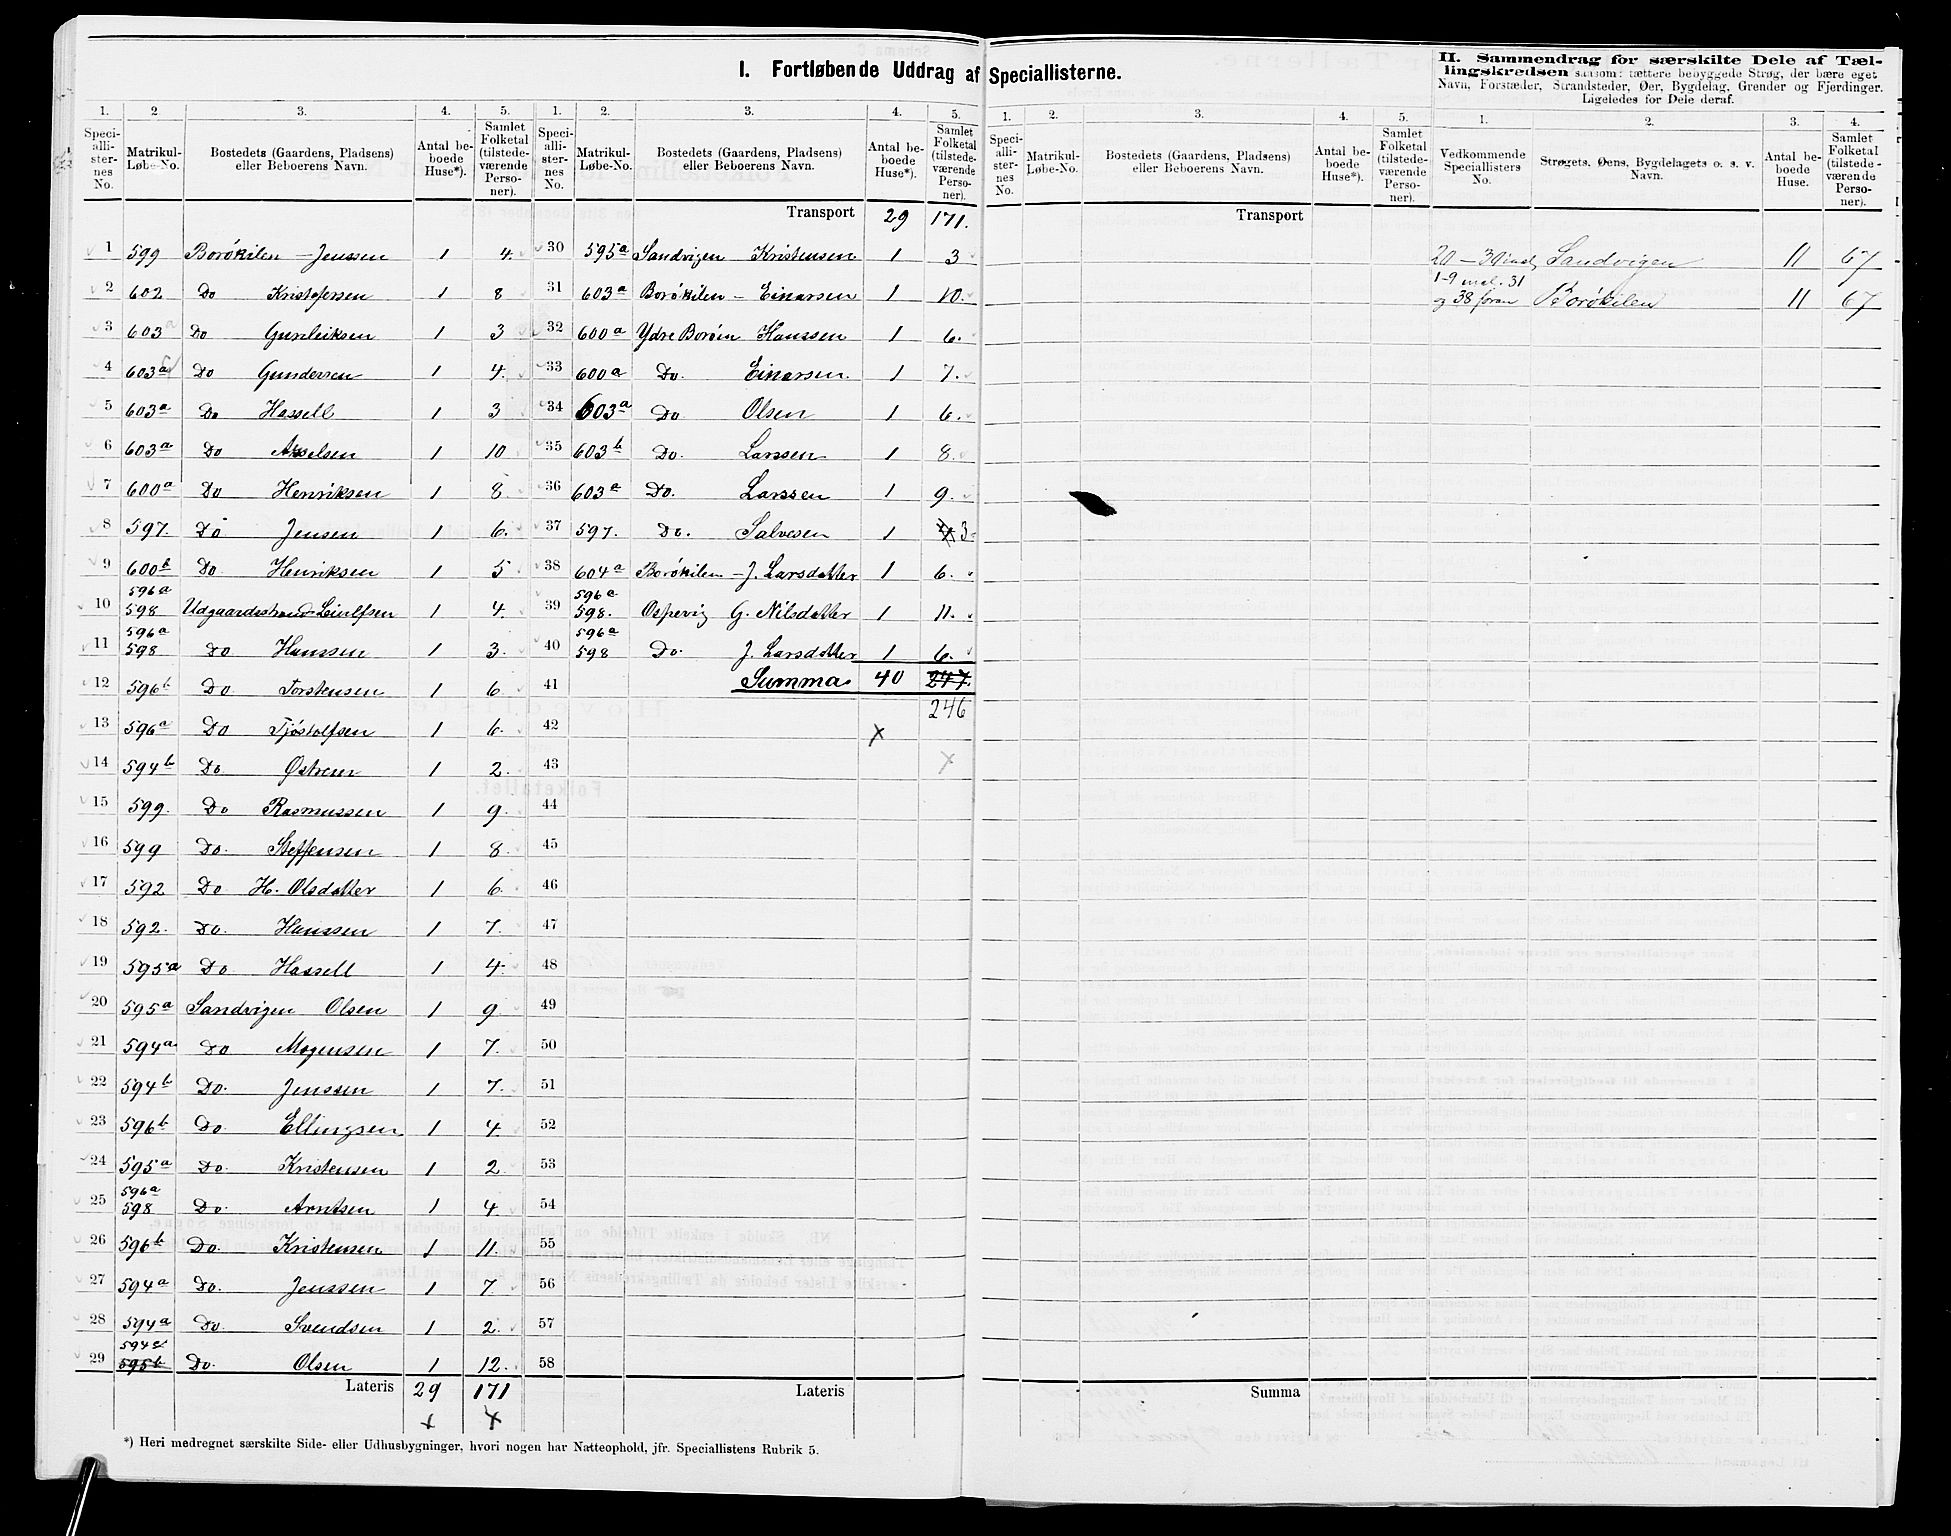 I. Fortløbende Uddrag af Speciallisterne.
II. Sammendrag for særskilte Dele af Tællingskredsen saasom: tættere bebyggede Strøg, der bære eget
Navn, Forstæder, Strandsteder, Øer, Bygdelag, Grender og Fjerdinger.
Ligeledes for Dele deraf.
1. 2 3. 4. 5. 1. 2. 3. 4. 5. 1. 2. 3. 4. 5. 1. 2. 3. 4.
Speciallisternes No. Matrikul-Løbe-No. Bostedets (Gaardens, Pladsens) eller Beboerens Navn. Antal beboede Huse*). Samlet Folketal (tilstedeværende Personer).
Speciallisternes No. Matrikul-Løbe-No. Bostedets (Gaardens, Pladsens) eller Beboerens Navn. Antal beboede Huse*). Samlet Folketal (tilstedeværende Personer).
Speciallisternes No. Matrikul-Løbe-No. Bostedets (Gaardens, Pladsens) eller Beboerens Navn. Antal beboede Huse*). Samlet Folketal (tilstedeværende Personer).
Vedkommende Speciallisters No. Strøgets, Øens, Bygdelagets o. s. v. Navn. Antal beboede Huse. Samlet Folketal (tilstedeværende Personer).
1 599 Borøkilen – Jenssen 1 4.
2 602 Do Kristofersen 1 8
3 603a Do Gunleiksen 1 3
4 603a Do Gundersen 1 4.
5 603a Do Hassell 1 3
6 603a Do Akselsen 1 10
7 600a Do Henriksen 1 8.
8 597. Do Jensen 1 6.
9 600b Do. Henriksen 1 5
596a
10 598 Udgaardsstrand Leiulfsen 1 4.
596a
11 598 Do Hanssen 1 3.
12 596b Do Torstensen 1 6
13 596a Do Tjøstolfsen 1 6.
14 594b Do. Østrem 1 2.
15 599. Do Rasmussen 1 9.
16 599 Do. Steffensen 1 8.
17 592 Do H. Olsdatter 1 6.
18 592. Do. Hanssen 1 7.
19 595a Do Hassell 1 4.
20 595a Sandvigen Olsen 1 9.
21 594a. Do Mogensen 1 7.
22 594b Do. Jenssen 1 7.
23 596b Do. Ellingsen 1 4.
24 595a Do. Kristensen 1 2.
596a
25 598 Do. Arntsen 1 4.
26 596b Do. Kristensen 1 11.
27 594a Do. Jenssen 1 7.
28 594a Do. Svendsen 1 2.
594c
29 595b Do. Olsen 1 12.
Lateris 29 171
x x
Transport 29 171.
30 595a Sandvigen Kristensen 1 3
31 603a Borøkilen – Einarsen 1 10.
32 600a Ydre Borøen Hanssen 1 6.
33 600a Do. Einarsen 1 7.
34 603a Do Olsen 1 6.
35 603b Do. Larssen 1 8.
36 603a Do. Larssen 1 9.
37 597. Do. Salvesen 1 4 3.
38 604a Borøkilen – J. Larsdatter 1 6.
596a
39 598. Ospevig G. Nilsdatter 1 11.
596a
40 598 Do. J. Larsdatter 1 6.
41 Summa 40 247.
246
42 x
43 x
44
45
46
47
48
49
50
51
52
53
54
55
56
57
58
Lateris
Transport
Summa
20 – 30 incl. Sandvigen 11 67
1-9 incl. 31
og 38 foran Borøkilen 11 67
*) Heri medregnet særskilte Side- eller Udhusbygninger, hvori nogen har Natteophold, jfr. Speciallistens Rubrik 5.